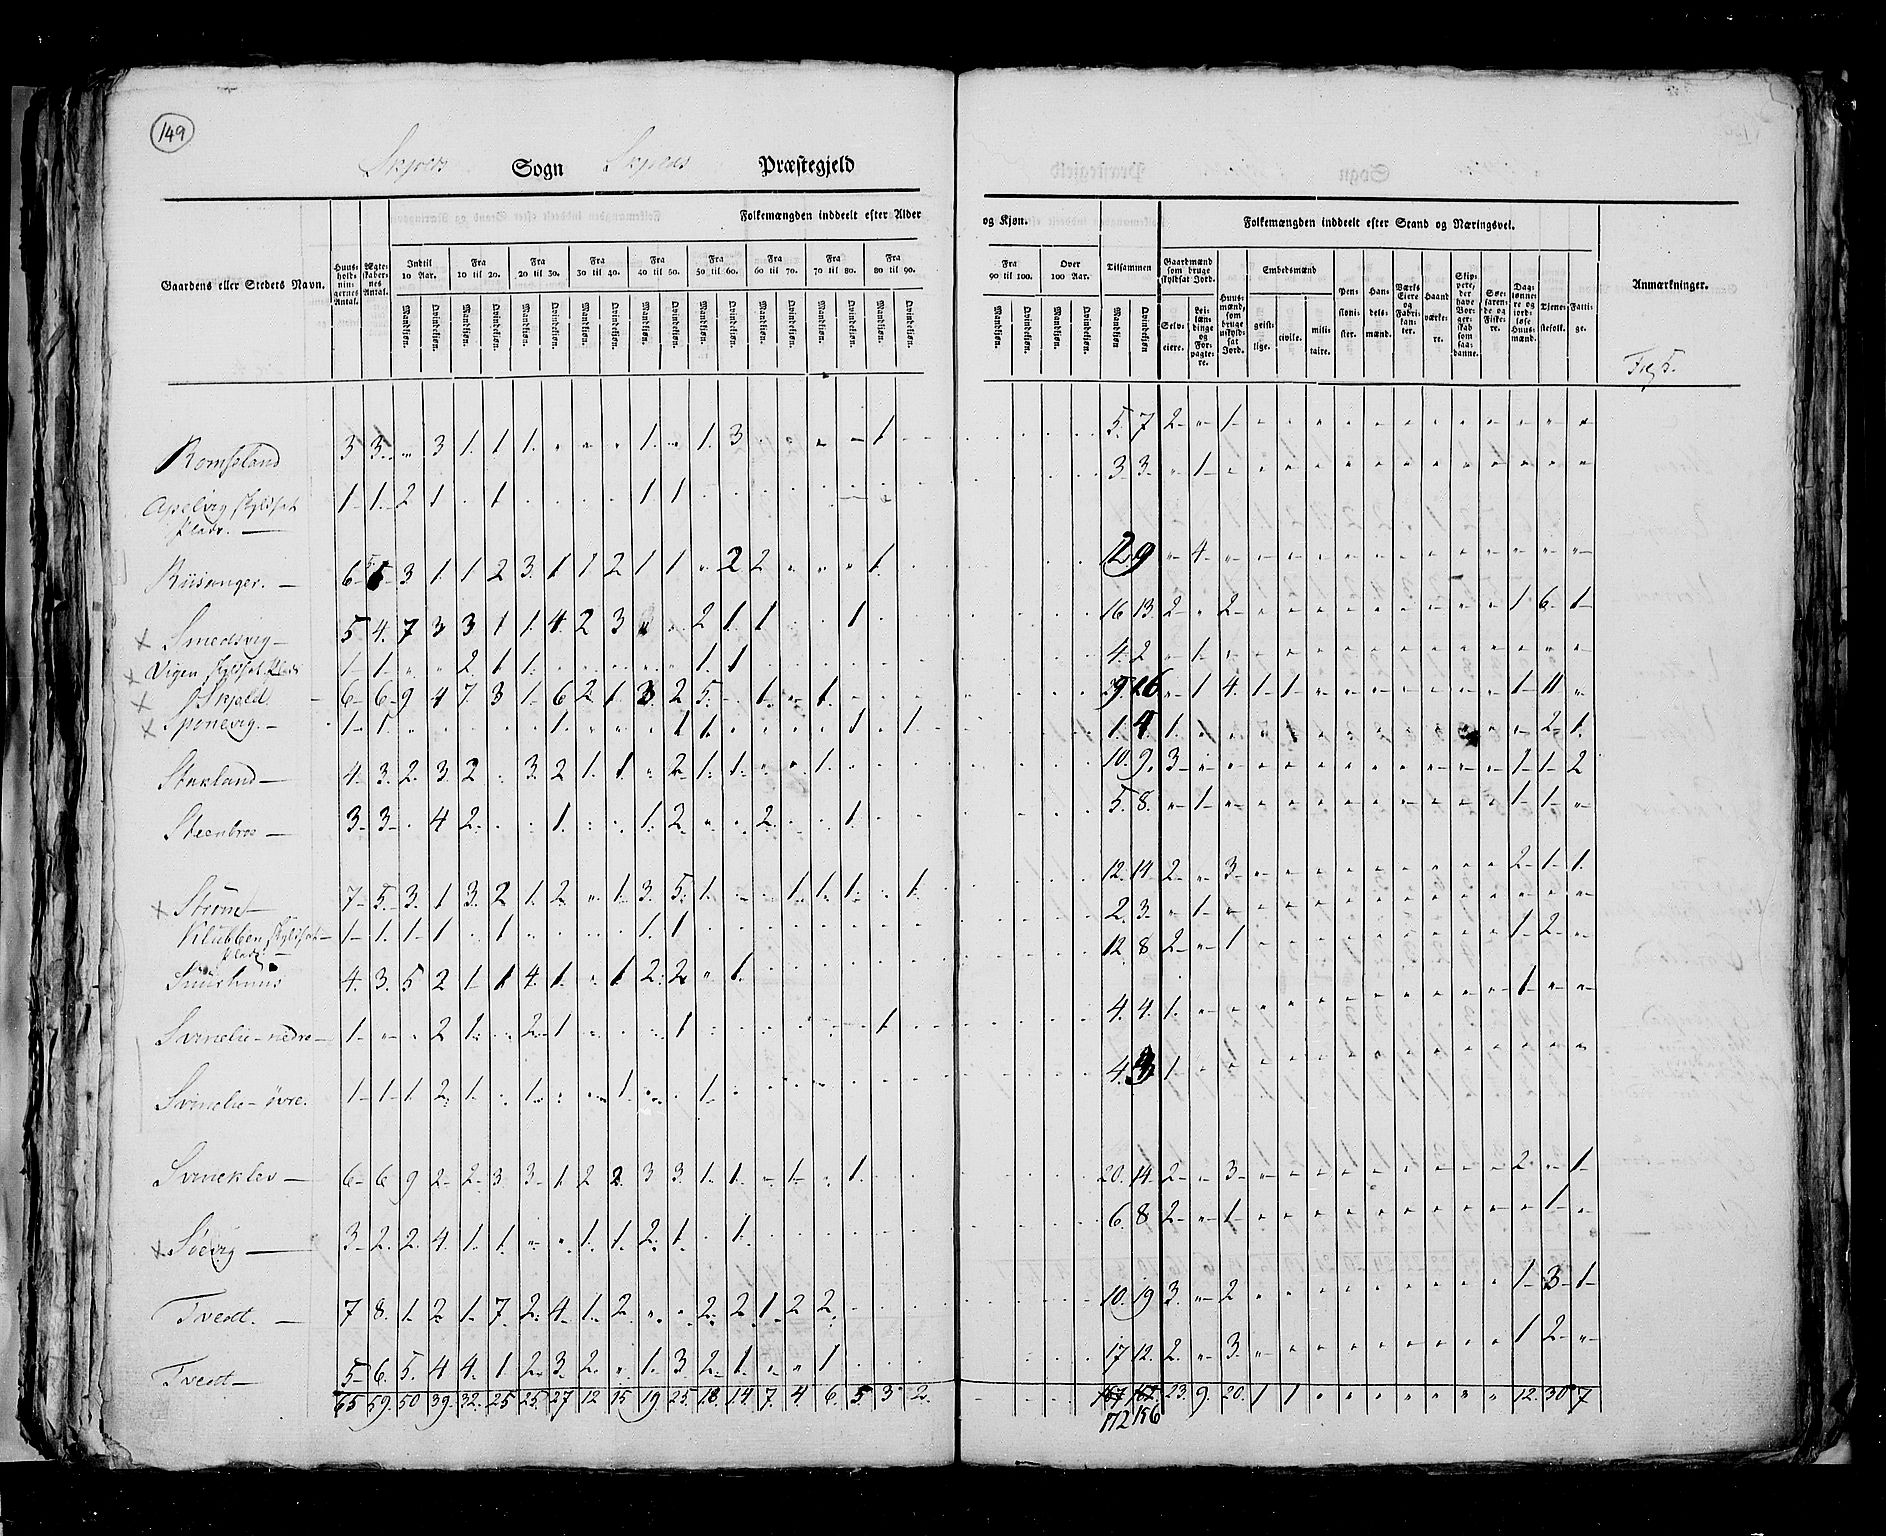 149
Sogn Præstegjeld
Folkemængden inddeelt efter Alder og Kjøn. Folkemængden inddeelt efter Stand og Næringsvei.
Gaardens eller Stedets Navn. Huus-hold-nin-gernes Antal. Ægte-skaber-nes Antal. Indtil 10 Aar. Fra 10 til 20. Fra 20 til 30. Fra 30 til 40. Fra 40 til 50. Fra 50 til 60. Fra 60 til 70. Fra 70 til 80. Fra 80 til 90. Fra 90 til 100. Over 100 Aar. Tilsammen
Mandkiøn. Qvindekiøn.
Gaardmænd som bruge skyldsat Jord. Selv-eiere. Lei-læn-dinge og For-pagte-re. Huus-mænd, som bruge uskyld-sat Jord. Embedsmænd geist-lige. civile. mili-taire. Pen-sioni-ster. Han-dels-mænd. Værks Eiere og Fabri-kan-ter. Haand værke-re. Skip-pere, der have Bor-ger-skab som saa-danne. Søe-faren-de og Fiske-re. Dag-lønne-re og jord-løse Huus-mænd. Tjene-stefolk. Fatti-ge. Anmærkninger.
Romseland 3 3 " 3 1 1 1 " " " 1 " 1 3 " " " " 1 5 7 2 " 1
Apelvig skyldsat 1 1 2 1 " 1 " " " " 1 1 3 3 " 1
Plads.
Riisanger. 6 3 1 1 2 3 1 1 2 1 1 " 2 2 " " " " 1 12 9 " 4
Smedsvig 5 4 7 3 3 1 1 4 2 3 " " 2 1 1 " " 1 16 13 2 " 2 1 6 1
Vigen skyldsat Plads 1 1 " " 2 1 1 " " " " " 1 1 4 2 " 1
Skjold 6 6 9 4 7 3 1 6 2 1 3 2 5 " 1 " 1 16 " 1 4 1 1 1 11 "
Spinevig. 1 1 1 1 1 1 1 1 4 1 2 1
Stakland 4 3 2 3 2 " 3 2 1 1 " 2 1 1 " " 1 10 9 3 1 1 2
Steenbroe 3 3 " 4 2 " " 1 " " 1 2 " " 2 " " 1 5 8 " 1 1 1 "
Strøm 7 5 3 1 3 2 1 2 " 1 3 5 1 " " 1 1 1 " 1 12 14 2 " 3 2 1 1
Klubben skyldsat 1 1 1 1 " 1 1 1 2 3 " 1
Plads.
4 3 5 2 1 1 4 1 " 1 2 2 " 1 12 8 2 " 1 1 2 "
Svinelie nedre 1 " " 2 1 " 2 1 " " " 1 1 4 4 1 1 " "
Svinelie øvre. 1 1 1 2 1 " 1 " " 1 " " 1 4 3 1
Svineklev 6 6 9 2 2 3 3 1 2 2 3 3 1 1 " 1 " 1 20 14 2 " 3 2 " 1
Søevig 3 2 2 4 1 1 " " 1 1 2 1 " 1 6 8 2 " 1 " 1 "
Tvedt. 7 8 1 2 1 7 2 4 1 2 " " 2 2 1 2 2 10 19 3 " 2 1 3 1
Tvedt 5 6 5 4 4 1 2 3 2 " 1 3 2 1 " " 1 17 12 2 " 3 1 2 "
65 59 50 39 32 25 25 27 12 15 19 25 18 14 7 4 6 5 3 2 23 9 20 1 1 12 30 7
172 156